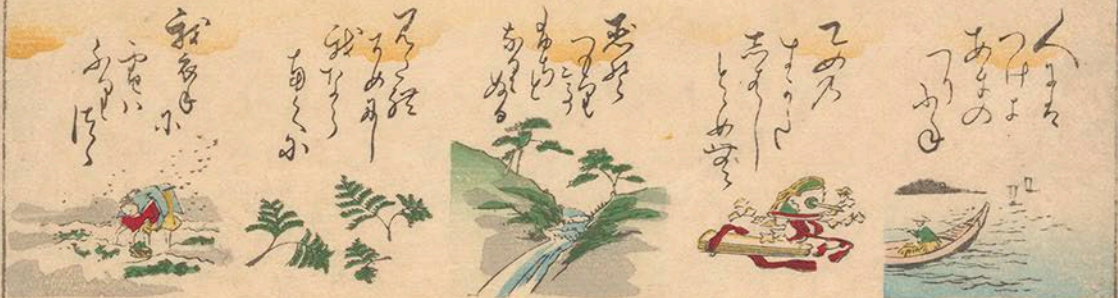 人には
つけよ
あまの
つりふね
乙め乃
すかた
しはし
とゝめ無
恋そ
つもりて
ふちと
なりぬる
みたれ
そめ尓し
我なら
なくに
我衣手
に
雪ハ
ふり
つゝ